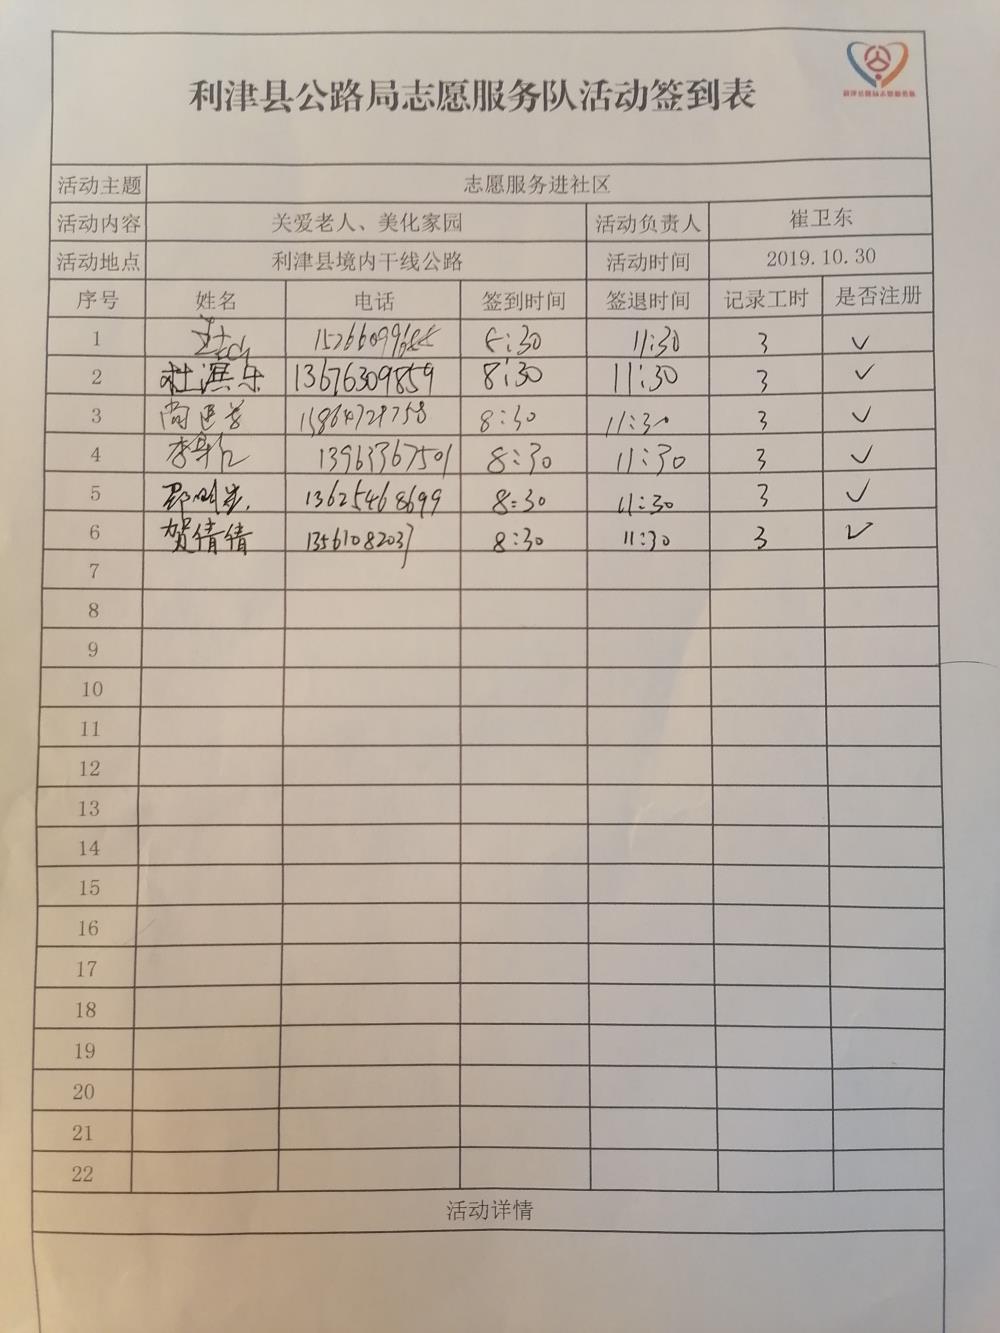 利津县公路局志愿服务队活动签到表
利津县公路局志愿服务队
活动主题 志愿服务进社区
活动内容 关爱老人、美化家园 活动负责人 崔卫东
活动地点 利津县境内干线公路 活动时间 2019.10.30
序号 姓名 电话 签到时间 签退时间 记录工时 是否注册
1 8:30 11:30 3 ✓
2 杜滨乐 13676309859 8:30 11:30 3 ✓
3 8:30 11:30 3 ✓
4 13963367501 8:30 11:30 3 ✓
5 13625468699 8:30 11:30 3 ✓
6 贺倩倩 13561082037 8:30 11:30 3 ✓
7
8
9
10
11
12
13
14
15
16
17
18
19
20
21
22
活动详情